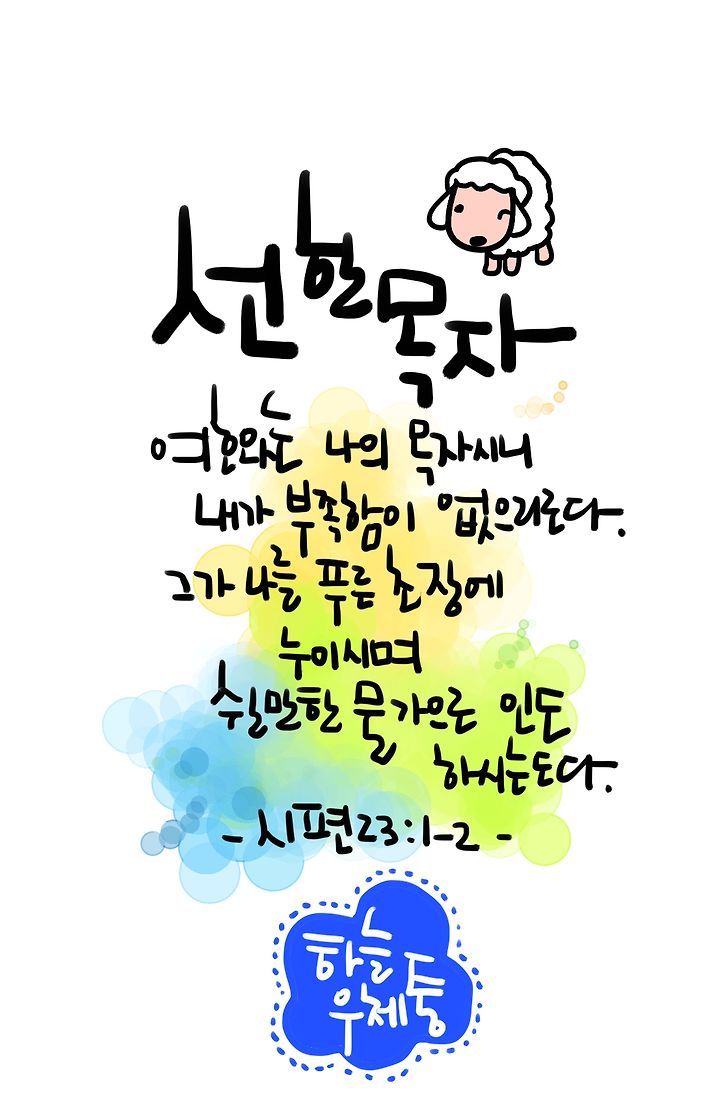 선한목자
여호와는 나의 목자시니
내가 부족함이 없으리로다.
그가 나를 푸른 초장에
누이시며
쉴만한 물가으로 인도
하시는도다.
- 시편23:1-2 -
하늘
우체통